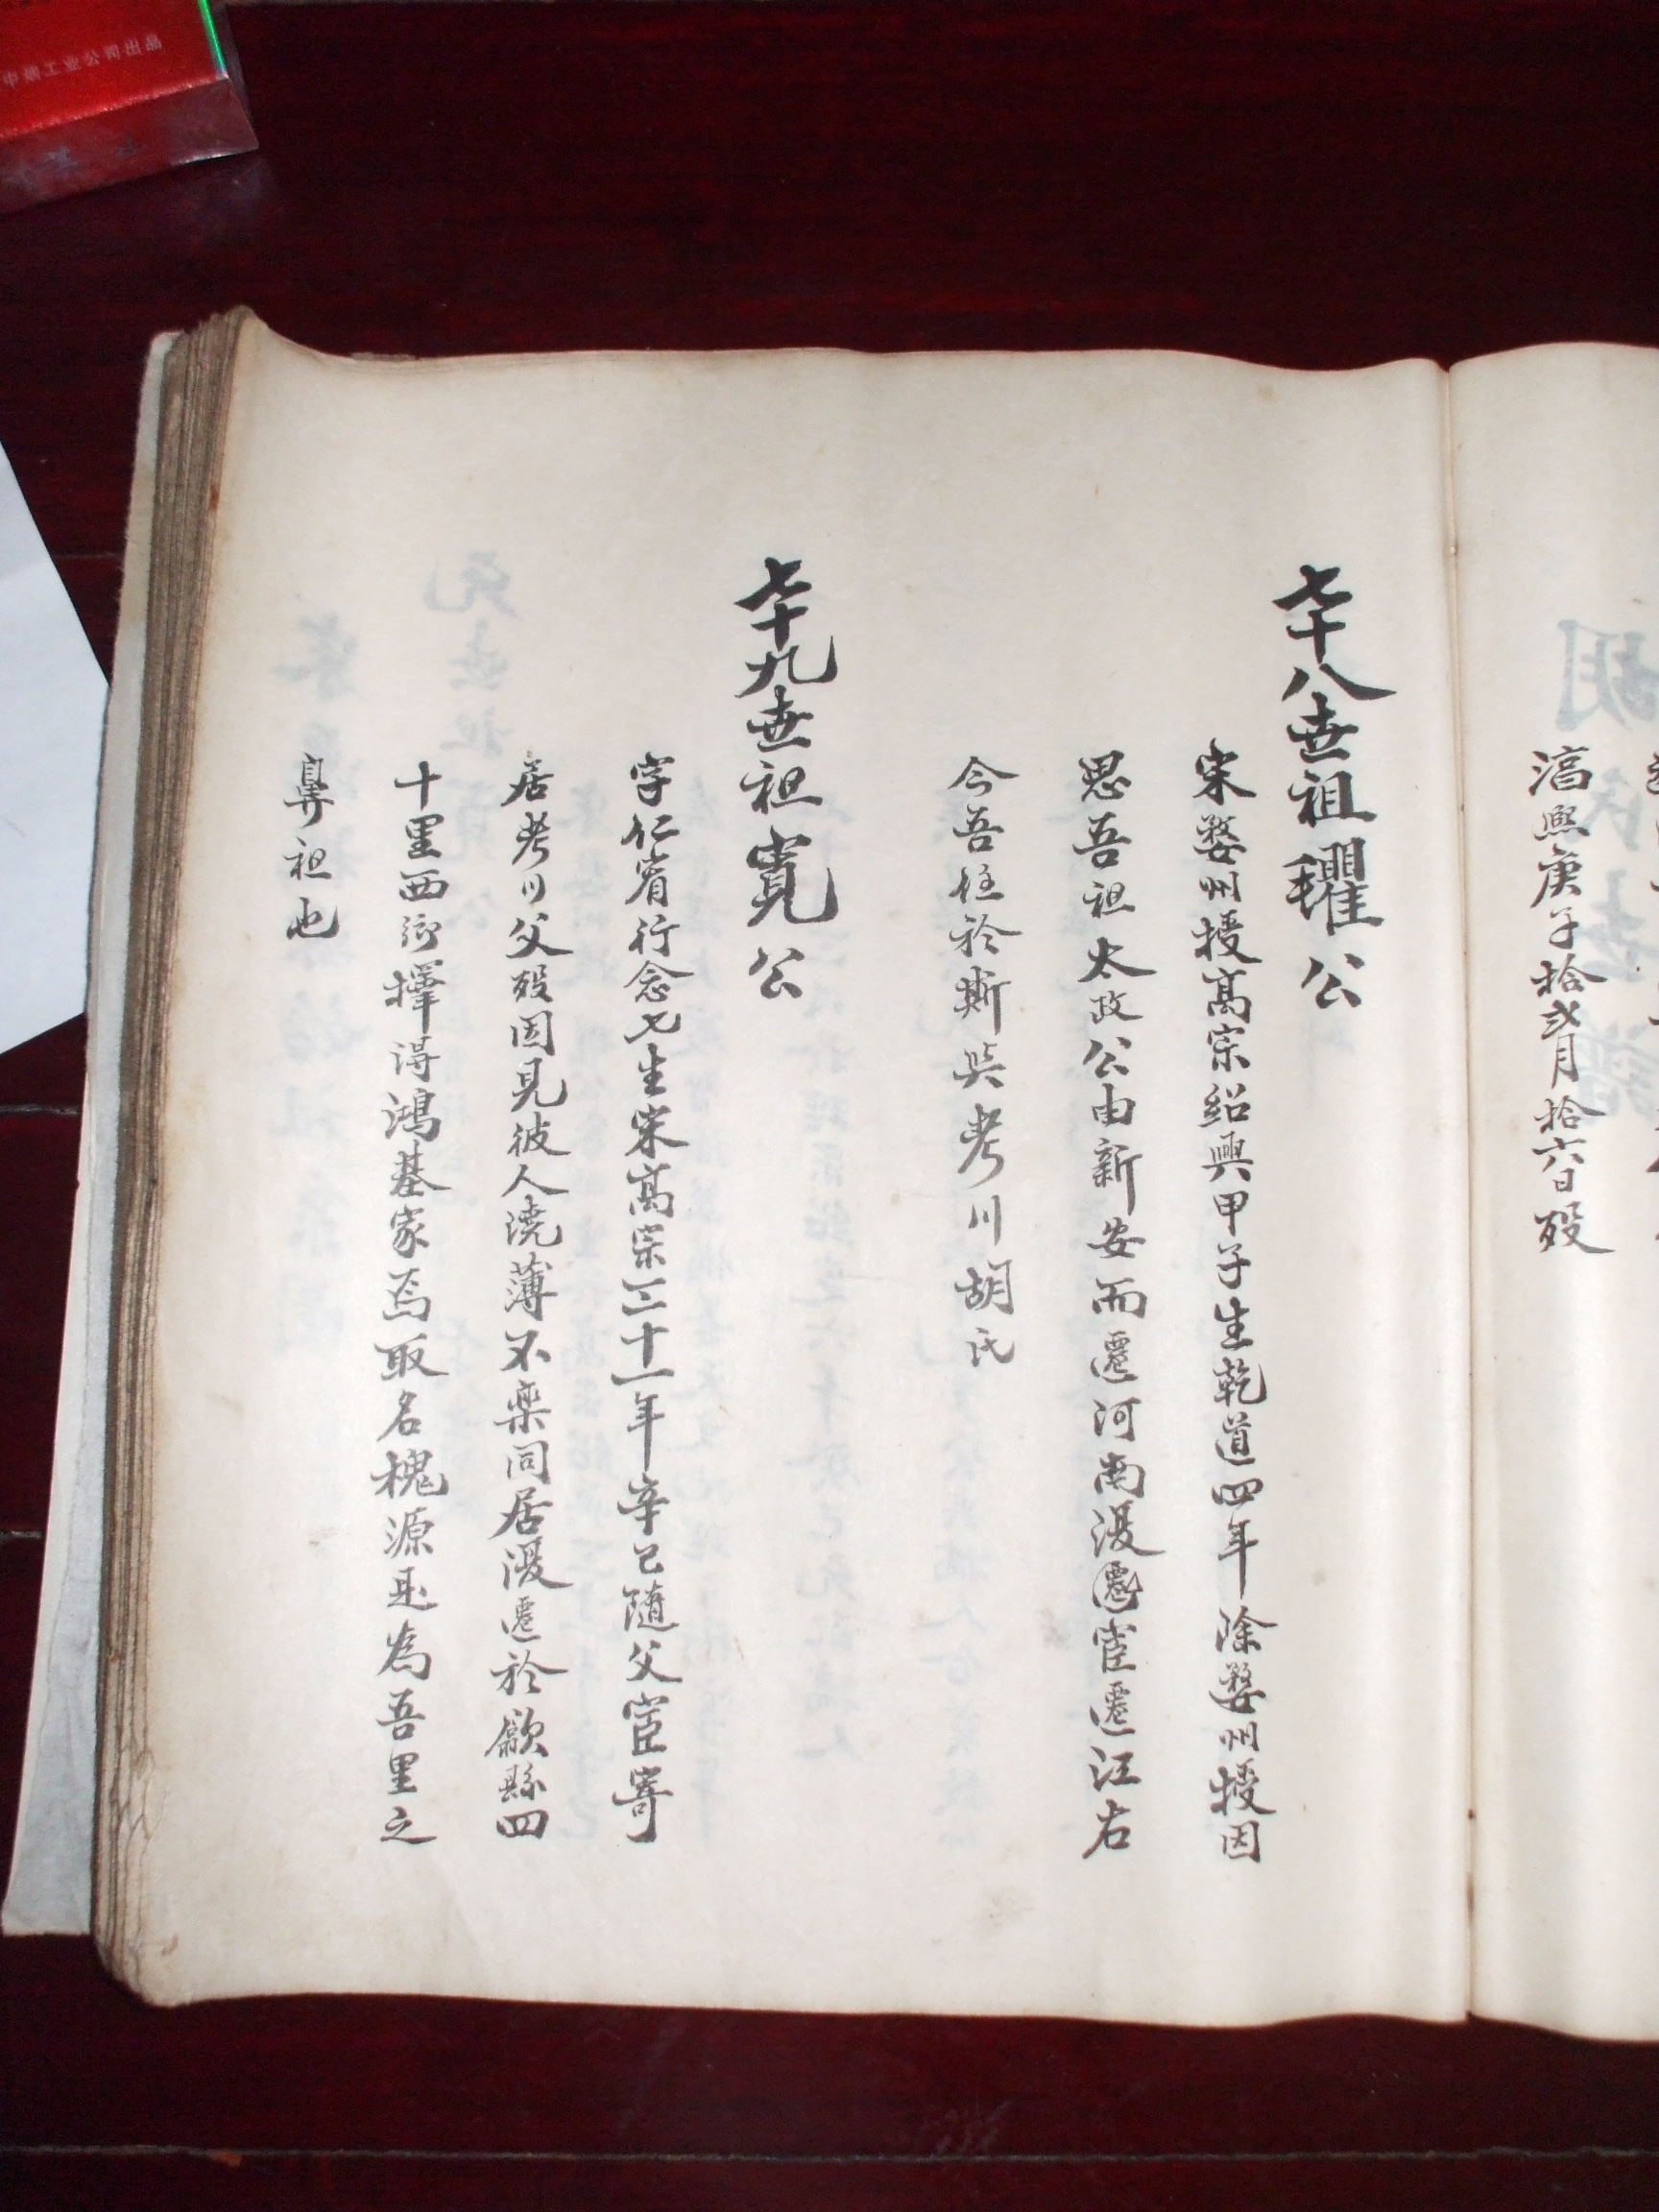 淳熙庚子拾弍月拾六日殁
七十八世祖㼇公
宋婺州授高宗紹興甲子生乾道四年除婺州授因
思吾祖太政公由新安而遷河南復遷宦遷江右
今吾任於斯與考川胡氏
七十九世祖寛公
字仁宥行念七生宋高宗三十一年辛巳随父宦寄
居考川父殁因見彼人澆薄不楽同居復遷於歙縣四
十里西鄉擇得鴻基家焉取名槐源是為吾里之
鼻祖也
中烟工业公司出品